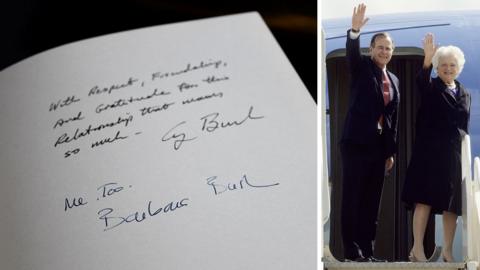 With Respect, Friendship,
And Gratitude for this
Relationship that means
so much-
Gy Bush
Me Too.
Barbara Bush